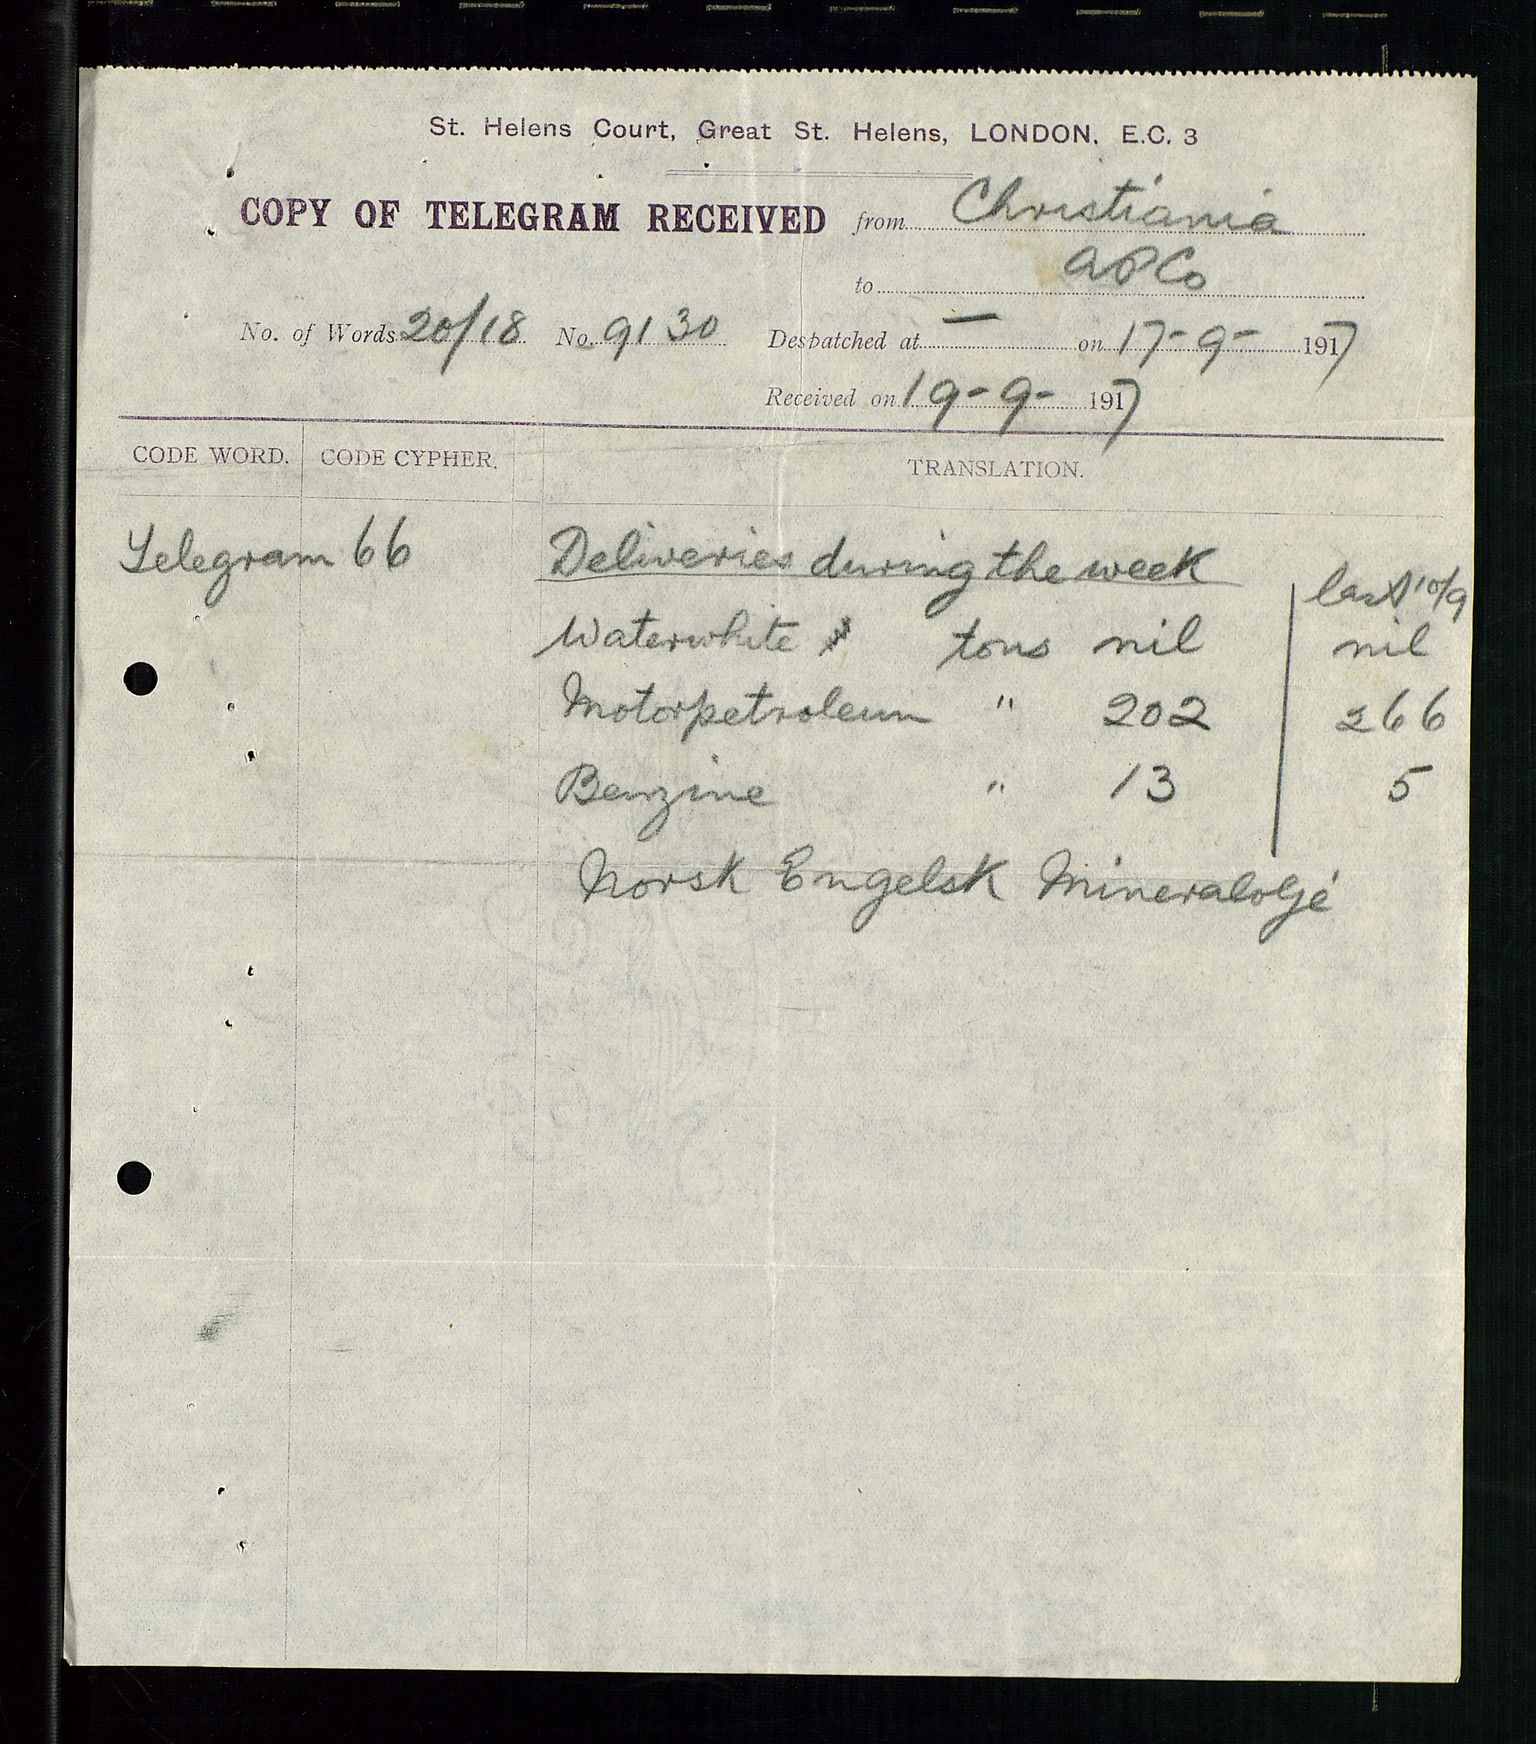 St. Helens Court, Great St. Helens, LONDON. E.C. 3
COPY OF TELEGRAM RECEIVED from Christiania
to APCo
No. of Words 20/18 No. 9130 Despatched at — on 17-9- 1917
Received on 19-9- 1917
CODE WORD. CODE CYPHER. TRANSLATION.
Telegram 66 Deliveries during the week last 10/9
Waterwhite tons nil nil
Motorpetroleum " 202 266
Benzine " 13 5
Norsk Engelsk Mineralolje